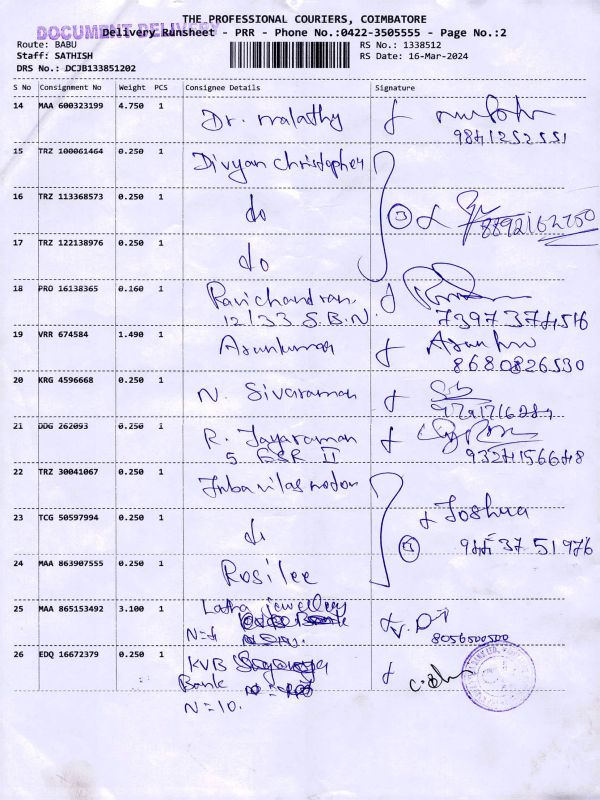 THE PROFESSIONAL COURIERS, COIMBATORE
DOCUMENT DELIVERY
Delivery Runsheet - PRR - Phone No.:0422-3505555 - Page No.:2
Route: BABU RS No.: 1338512
Staff: SATHISH RS Date: 16-Mar-2024
DRS No.: DCJB133851202
S No Consignment No Weight PCS Consignee Details Signature
14 MAA 600323199 4.750 1 Dr. Malathy
9841252551
15 TRZ 100061464 0.250 1 Divyan Christopher
16 TRZ 113368573 0.250 1 do 3
8892162750
17 TRZ 122138976 0.250 1 do
18 PRO 16138365 0.160 1 Ravichandran
12/33 S.B.N. 7397374516
19 VRR 674584 1.490 1 Arunkumar
8680826530
20 KRG 4596668 0.250 1 N. Sivaraman
21 DDG 262093 0.250 1 R. Jayaraman
5 GSR II 9324156648
22 TRZ 30041067 0.250 1
Joshua
23 TCG 50597994 0.250 1 do
3 37 51976
24 MAA 863907555 0.250 1 Rosilee
25 MAA 865153492 3.100 1 Latha jewellery
8056500500
26 EDQ 16672379 0.250 1 KVB
Bank
N=10.